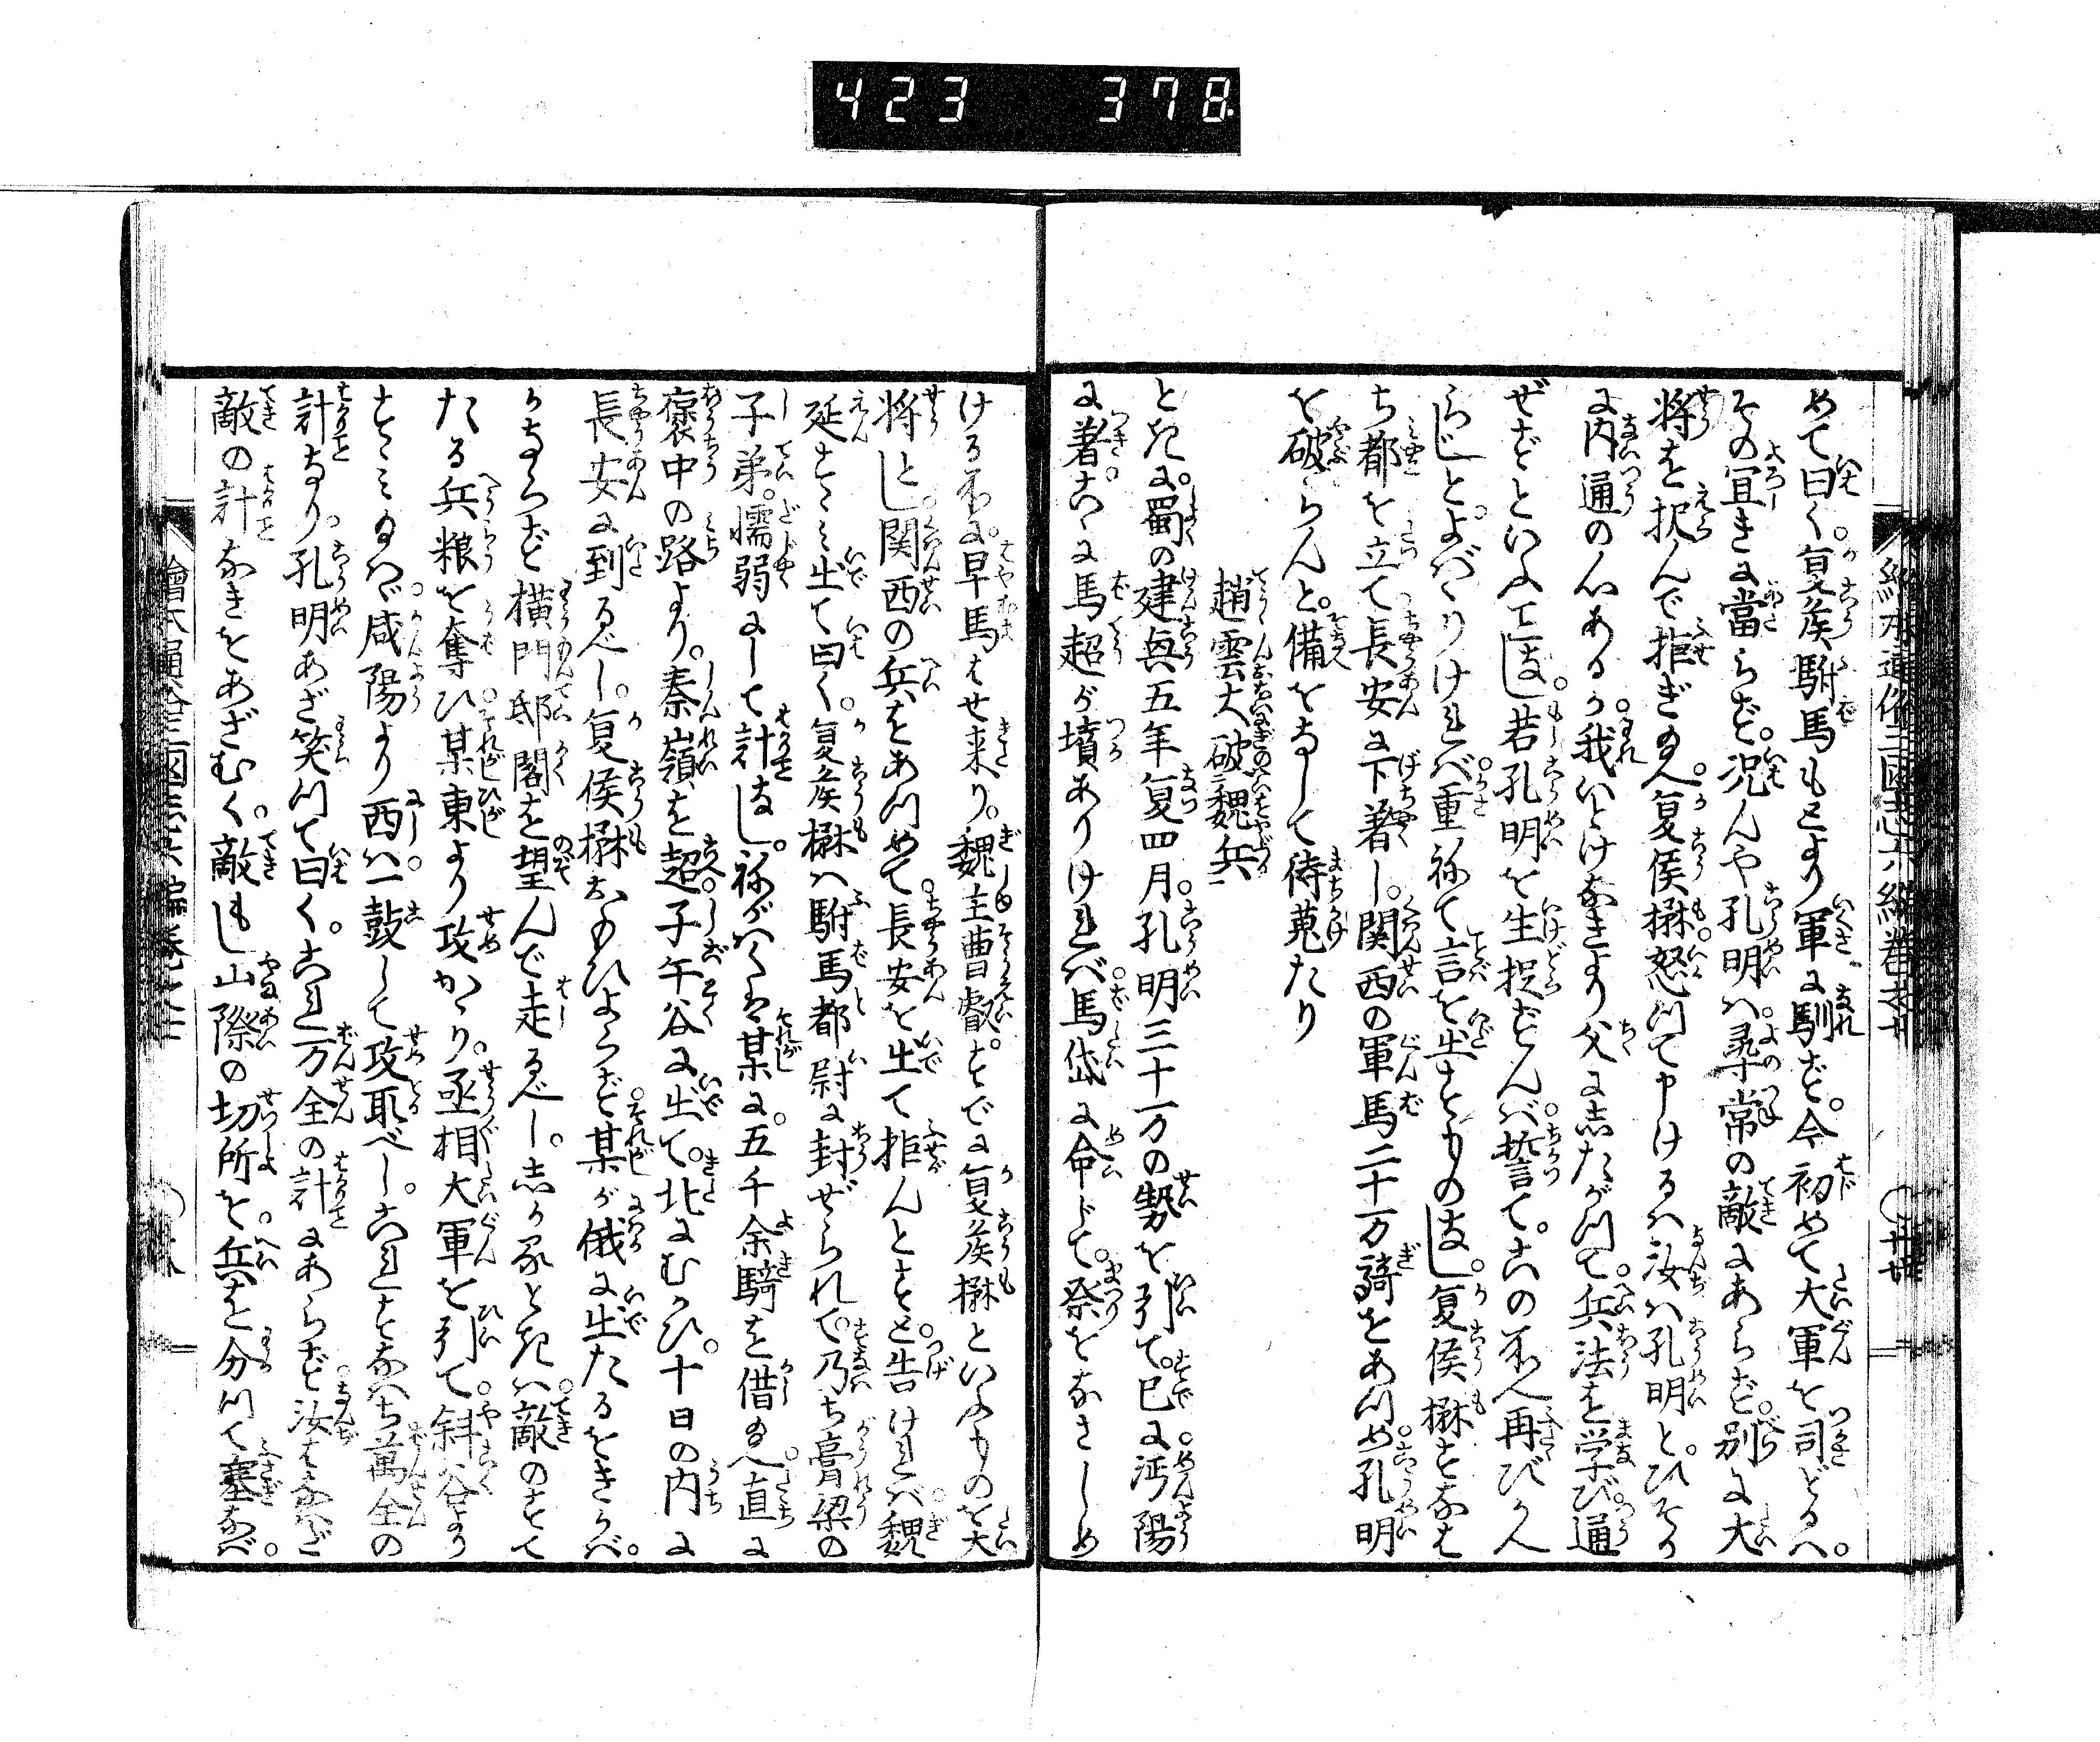 423 378
めて曰く。夏侯駙馬もとより軍に馴ず。今初めて大軍を司どるハ。
その宜きに當らず。况んや孔明ハ。尋常の敵にあらず。別に大
将を択んで拒ぎ給へ。夏侯楙怒つて申けるハ汝ハ孔明と。ひそか
に内通の心あるか。我いとけなきより父に志たがつて。兵法を学び通
ぜずといふ事なし。若孔明を生捉ずんバ誓て。この所へ再びかへ
らじとよバゝりけれバ重ねて言を出すものなし。夏侯楙すなは
ち都を立て長安に下着し。関西の軍馬二十万騎をあつめ孔明
を破らんと。備をなして待蒐たり
趙雲大破魏兵
ときに。蜀の建興五年夏四月。孔明三十一万の勢を引て。已に沔陽
に著。こゝに馬超が墳ありけれバ。馬岱に命じて。祭をなさしめ
ける所に。早馬はせ来り。魏主曹叡。すでに夏侯楙といふものを大
将とし。関西の兵をあつめて。長安を出て拒んとすと。告けれバ。魏
延すゝミ出て曰く。夏侯楙ハ駙馬都尉に封ぜられて。乃ち膏梁の
子弟。懦弱にして計なし。ねがハくは某に。五千余騎を借給へ。直に
褒中の路より。秦嶺を超。子午谷に出て。北にむかひ。十日の内に
長安に到るべし。夏侯楙おもひよらず。某が俄に出たるをきかバ。
かならず横門邸閣を望んで走るべし。志かるときハ。敵のすて
たる兵粮を奪ひ。某東より攻かゝり。丞相大軍を引て。斜谷より
すゝミ給ハゞ。咸陽より西ハ。一鼓して攻取べし。これすなハち萬全の
計なり。孔明あざ笑つて曰く。これ万全の計にあらず。汝はなハだ
敵の計なきをあざむく。敵もし山際の切所を。兵を分つて塞なバ。